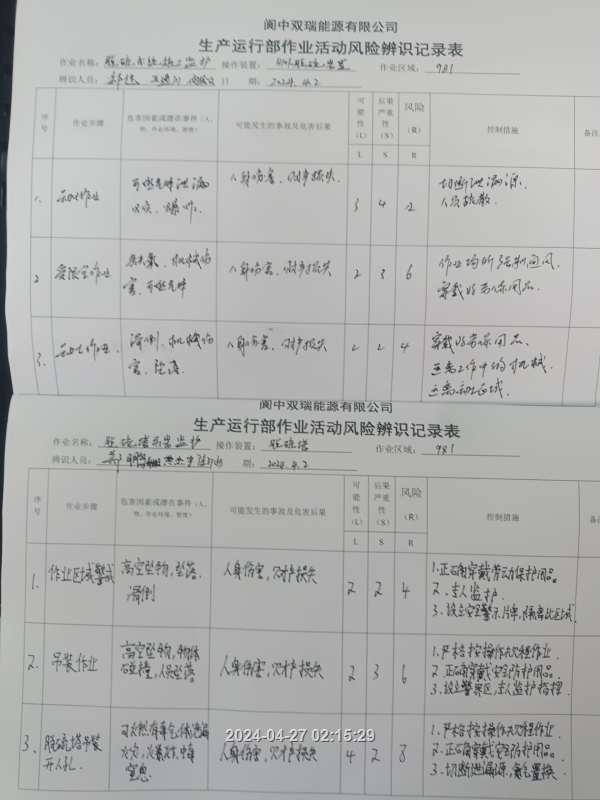 阆中双瑞能源有限公司
生产运行部作业活动风险辨识记录表
作业名称： 脱硫系统 监护 操作装置： 脱硫装置 作业区域： 981
辨识人员： 日 期： 2024.4.2
序号 作业步骤 危害因素或潜在事件（人、物、作业环境、管理） 可能发生的事故及危害后果 可能性（L） 后果严重性（S） 风险（R） 控制措施 备注
L S R
1. 动火作业 可燃气体泄漏 火灾、爆炸。 人身伤害、财产损失。 3 4 12 切断泄漏源。 人员疏散。
2 受限空间作业 机械伤害、可燃气体 人身伤害、财产损失 2 3 6 作业场所强制通风。 穿戴好劳保用品。
3. 动土作业. 滑倒、机械伤害、坠落。 人身伤害、财产损失 2 2 4 穿戴好劳保用品。 远离工作中的机械. 远离动土区域.
阆中双瑞能源有限公司
生产运行部作业活动风险辨识记录表
作业名称： 脱硫塔吊装监护 操作装置： 脱硫塔 作业区域： 981
辨识人员： 期： 2024.4.2
序号 作业步骤 危害因素或潜在事件（人、物、作业环境、管理） 可能发生的事故及危害后果 可能性（L） 后果严重性（S） 风险（R） 控制措施 备注
L S R
1. 作业区域警戒 高空坠物，坠落、滑倒 人身伤害，财产损失 2 2 4 1.正确穿戴劳动保护用品。 2.专人监护. 3.设立安全警示牌，隔离此区域.
2. 吊装作业 高空坠物，物体碰撞，人员坠落 人身伤害，财产损失 2 3 6 1.严格按操作规程作业. 2.正确穿戴安全防护用品。 3.设立警界区，专人监护指挥.
3、 脱硫塔吊装开人孔. 可燃有毒气体泄漏 火灾，爆炸，中毒 窒息 人身伤害，财产损失 4 2 8 1.严格按操作规程作业. 2.正确穿戴安全防护用品。 3.切断泄漏源，氮气置换.
2024-04-27 02:15:29